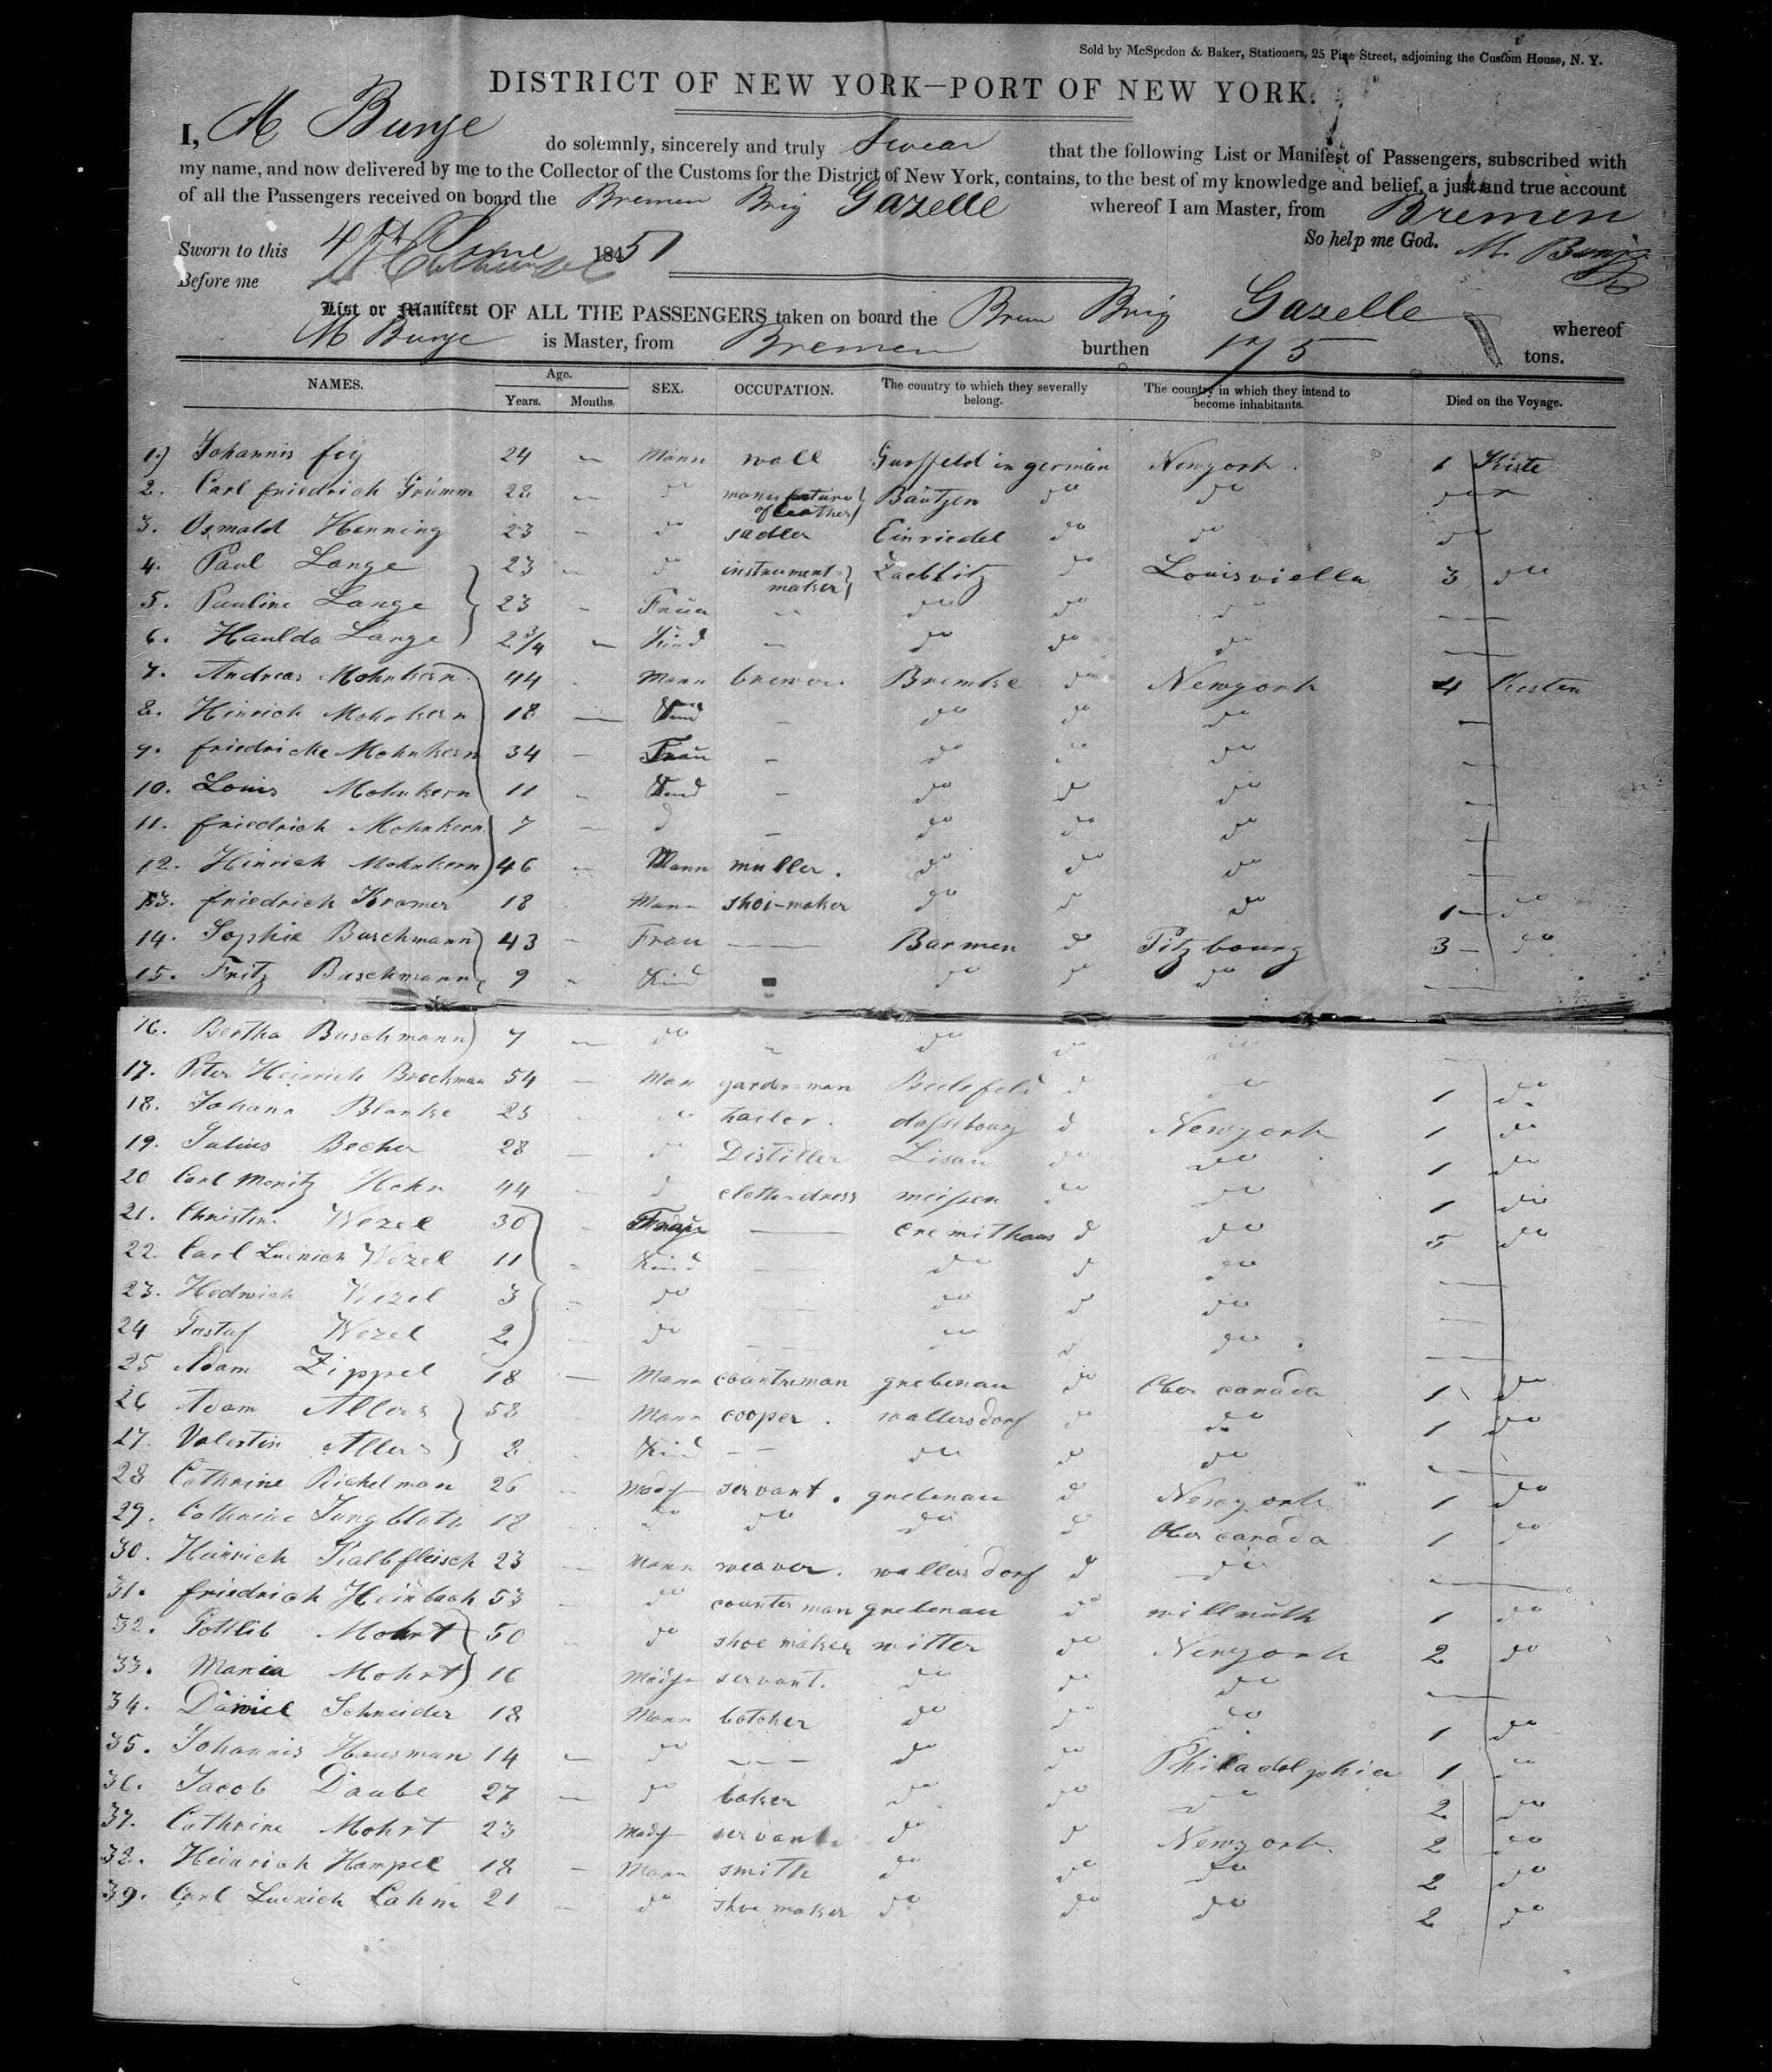 Sold by McSpedon & Baker, Stationers, 25 Pine Street, adjoining the Custom House, N. Y.
DISTRICT OF NEW YORK—PORT OF NEW YORK.
I, M Bunje do solemnly, sincerely and truly Swear that the following List or Manifest of Passengers, subscribed with
my name, and now delivered by me to the Collector of the Customs for the District of New York, contains, to the best of my knowledge and belief, a just and true account
of all the Passengers received on board the Bremen Brig Gazelle whereof I am Master, from Bremen
So help me God. M. Bunje
Sworn to this 4th June 1851
Before me
List or Manifest OF ALL THE PASSENGERS taken on board the Brem Brig Gazelle whereof
M Bunje is Master, from Bremen burthen 175 tons.
NAMES. Age. Years. Months. SEX. OCCUPATION. The country to which they severally belong. The country in which they intend to become inhabitants. Died on the Voyage.
1.) Johannis fey 24 — Mann german Newyork. 1 Kiste
2. Carl friedrich Grümm 28 — do manufacture of leather Bäutzen do do do
3. Oswald Henning 23 — do sadler Einriedel do do do
4. Paul Lange 23 — do instrument-maker Zaeblitz do Louisviella 3 do
5. Pauline Lange 23 — Fraü — do do do —
6. Haulda Lange 2 3/4 — Kind — do do do —
7. Andreas Mohnkern 44 Mann brewer Bremke do Newyork 4 Kisten
8. Hinrich Mohnkern 18 — Kind — do do do —
9. friedricke Mohnkern 34 — Fraü — do do do —
10. Louis Mohnkern 11 — Kind — do do do —
11. friedrich Mohnkern 7 — d — do do do —
12. Hinrich Mohnkern 46 — Mann muller. do do do —
13. friedrich Kramer 18 Mann shoi-maker do d do 1 — do
14. Sophie Buschmann 43 — Frau — Barmen d Pitzbourg 3 — do
15. Fritz Buschmann 9 — Kind do do do —
16. Bertha Buschmann 7 — do — do do do —
17. Peter Heinrich Brockman 54 — Man garden=man Bielefeld d do 1 do
18. Johann Blanke 25 do tailor. d Newyork 1 do
19. Julius Becher 28 — do Distiller Lisau do do 1 do
20 Carl Moritz Hohn 44 — d cloth=dress meissen do do 1 do
21. Christine Wezel 30 Fraü — cremithaus d do 5 do
22. Carl Ludwich Wezel 11 — Kind — do d do —
23. Hedwich Wezel 3 — do — do d do —
24 Gustaf Wezel 2 — do — do d do. —
25 Adam Zippel 18 — Mann countreman grebenau do Ober canada 1 do
26 Adam Allers 58 Mann cooper. wallersdorf do do 1 do
27. Valentin Allers 2 Kind — do d do —
28 Cathrine Richelman 26 servant. grebenau d Newyork 1 do
29. Cathrine Jungbluth 18 do do do d Ober canada 1 do
30. Heinrich Kalbfleisch 23 — Mann weaver. wallersdorf d do —
31. friedrich Heinbach 53 — do counterman grebenau do willmuth 1 do
32. Gottlib Mohrt 50 do shoe maker witter do Newyork 2 do
33. Maria Mohrt 16 servant. do do do —
34. Daniel Schneider 18 Mann botcher do do do 1 do
35. Johannis Hausman 14 — do — do do Philadelphia 1 do
36. Jacob Daube 27 — do baker do do do 2 do
37. Cathrine Mohrt 23 servant do d Newyork 2 do
38. Heinrich Hampel 18 — Mann smith do do do 2 do
39. Carl Ludwich 21 — do shoe maker do do do 2 do